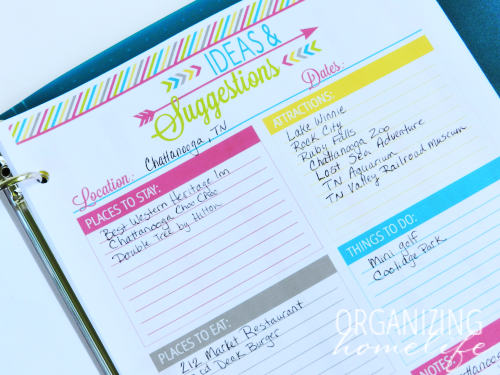 IDEAS &
Suggestions
Location: Chattanooga, TN
Dates:
PLACES TO STAY:
Best Western Heritage Inn
Chattanooga Choo Choo
Double Tree by Hilton
PLACES TO EAT:
212 Market Restaurant
Deck Burger
ATTRACTIONS:
Lake Winnie
Rock City
Ruby Falls
Chattanooga Zoo
Lost Sea Adventure
TN Aquarium
TN Valley Railroad Museum
THINGS TO DO:
Mini golf
Coolidge Park
NOTES:
ORGANIZING
homelife